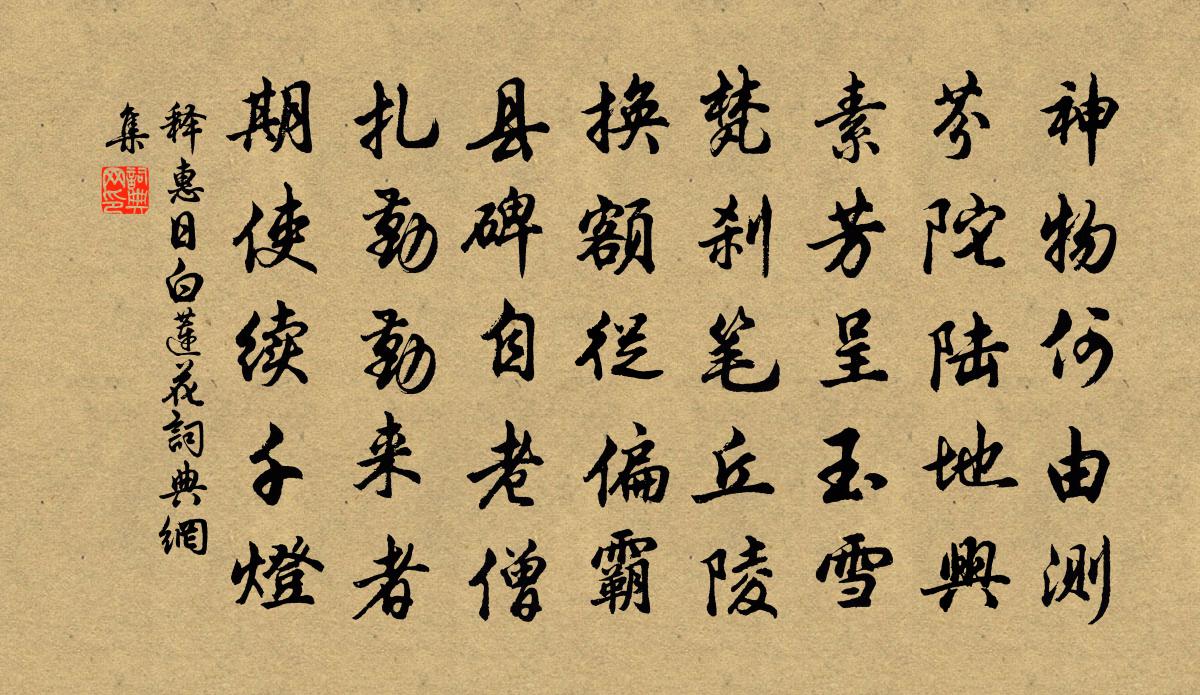 神物何由测
芬陀陆地興
素芳呈玉雪
梵刹笔丘陵
換额從偏霸
县碑自老僧
扎勤勤来者
期使续千燈
释惠日白蓮花詞典網
集
詞典
网印